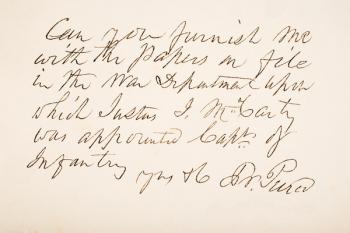 Can you furnish me
with the papers on file
in the War Department upon
which Justus I. McCarty
was appointed Capt. of
Infantry
yrs &c